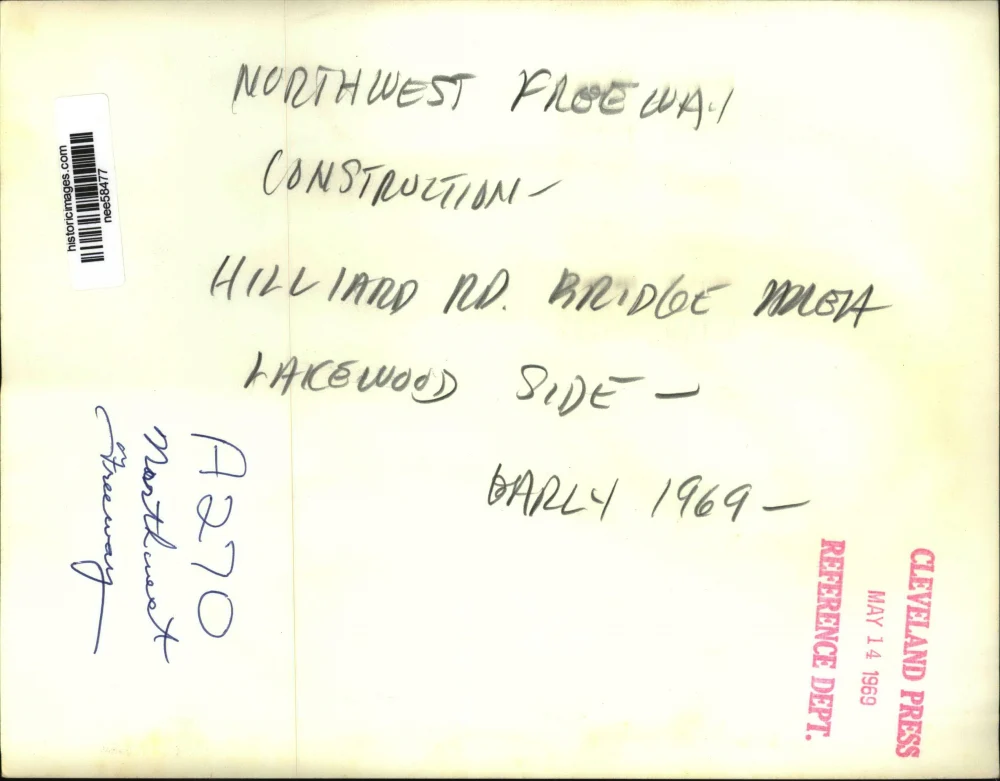 NORTHWEST FREEWAY
CONSTRUCTION-
HILLIARD RD. BRIDGE AREA
LAKEWOOD SIDE -
EARLY 1969 -
historicimages.com
nee58477
A270
Northwest
Freeway
CLEVELAND PRESS
MAY 14 1969
REFERENCE DEPT.